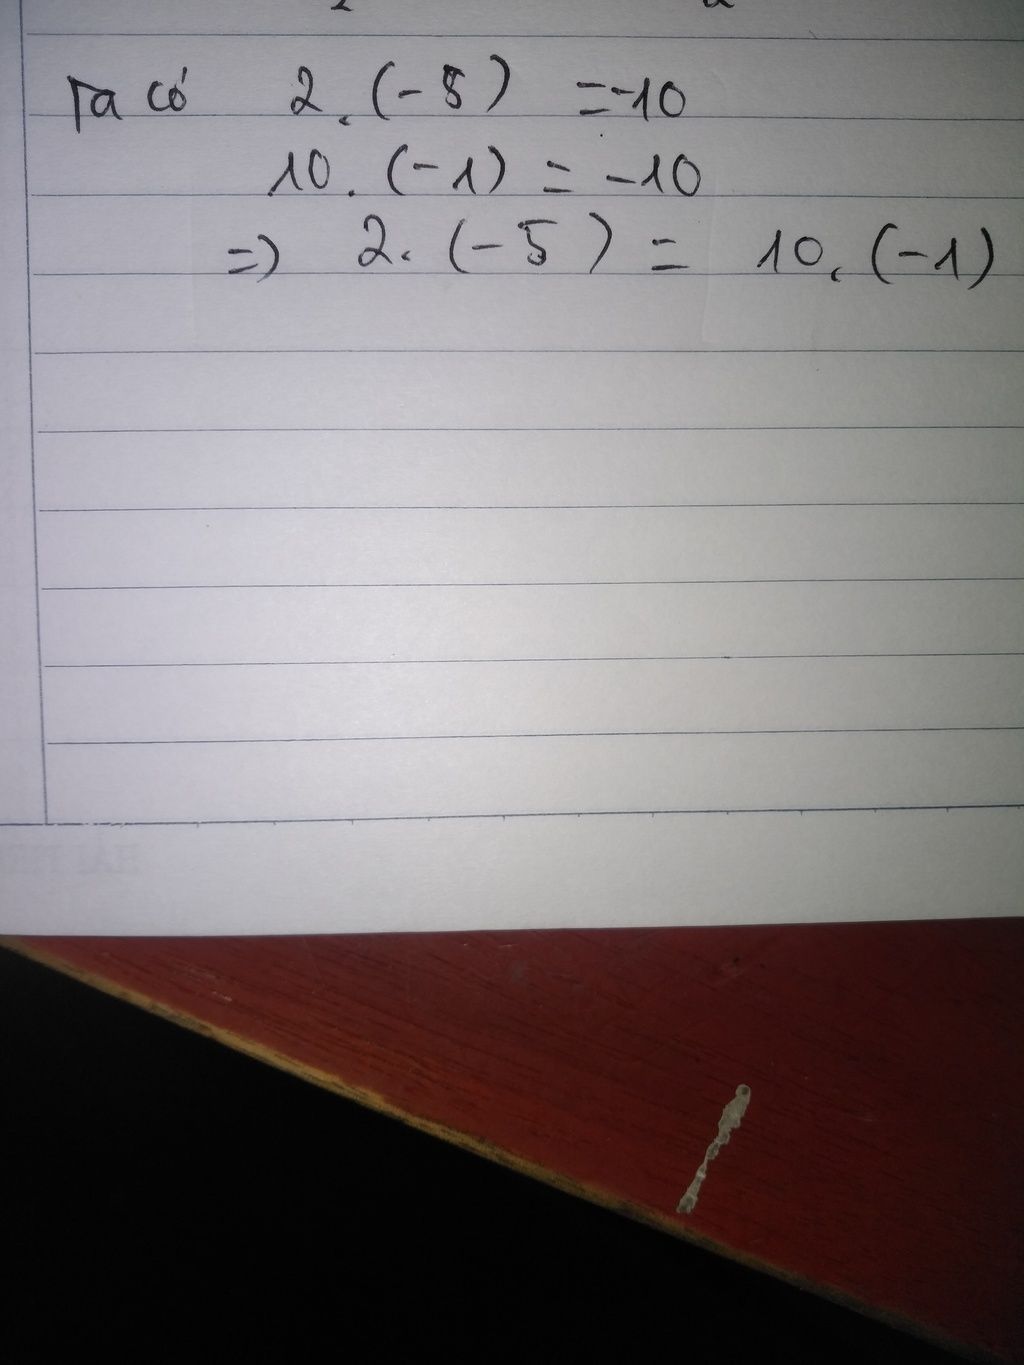 Ta có 2.(-5) = -10
10.(-1) = -10
=) 2.(-5) = 10.(-1)